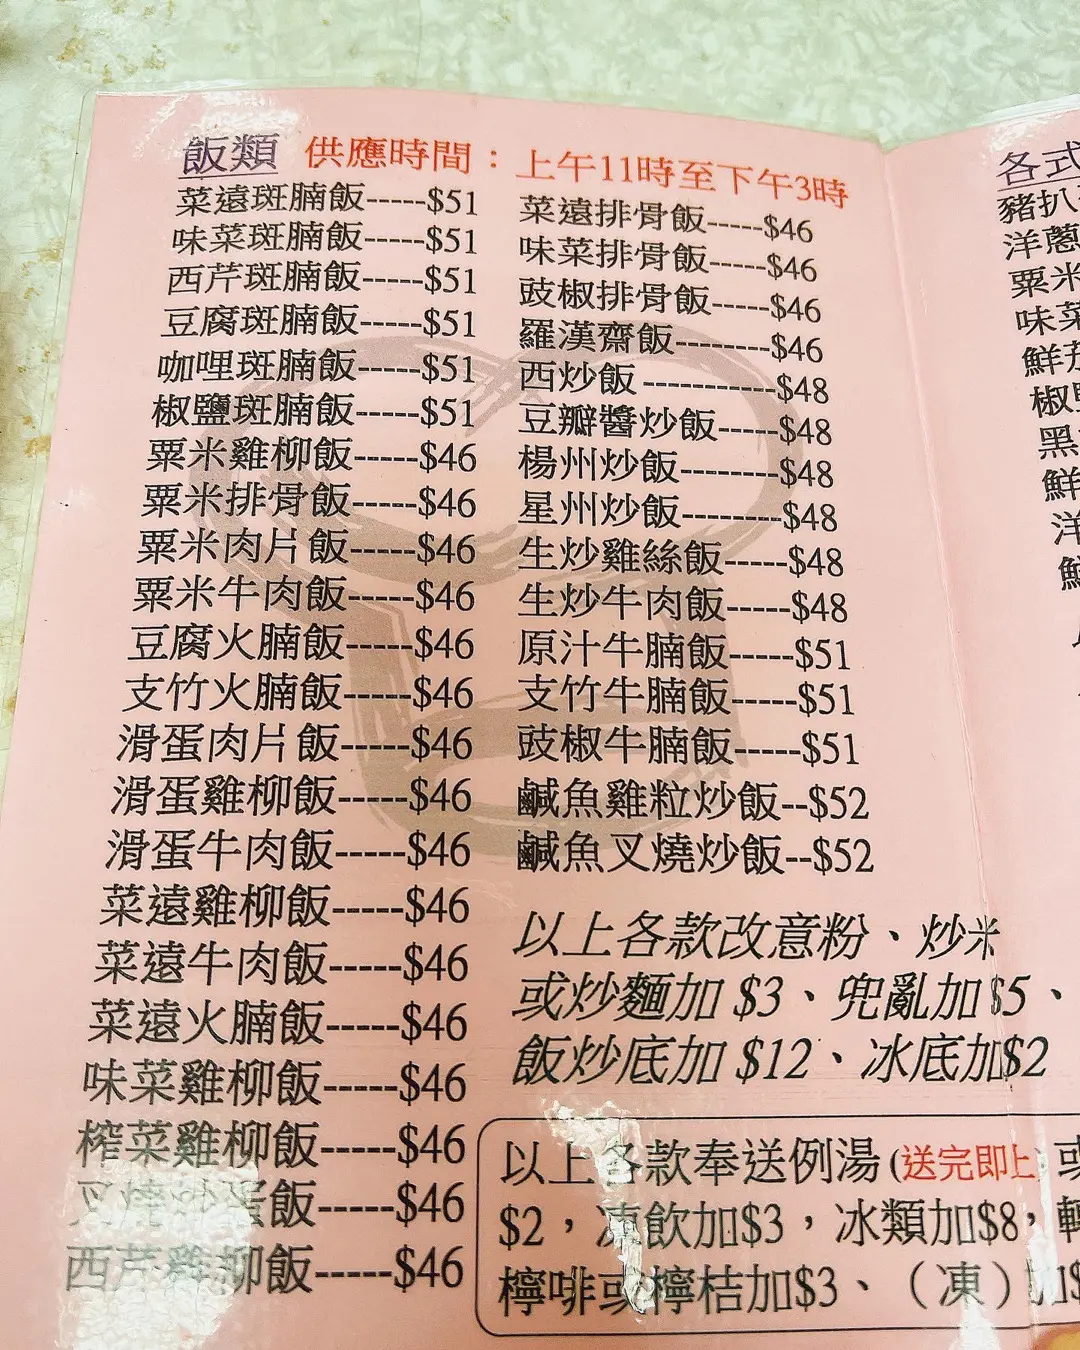 飯類 供應時間：上午11時至下午3時
菜遠斑腩飯-----$51
味菜斑腩飯-----$51
西芹斑腩飯-----$51
豆腐斑腩飯-----$51
咖哩斑腩飯-----$51
椒鹽斑腩飯-----$51
粟米雞柳飯-----$46
粟米排骨飯-----$46
粟米肉片飯-----$46
粟米牛肉飯-----$46
豆腐火腩飯-----$46
支竹火腩飯-----$46
滑蛋肉片飯-----$46
滑蛋雞柳飯-----$46
滑蛋牛肉飯-----$46
菜遠雞柳飯-----$46
菜遠牛肉飯-----$46
菜遠火腩飯-----$46
味菜雞柳飯-----$46
榨菜雞柳飯-----$46
叉燒 蛋飯-----$46
西芹雞柳飯-----$46
菜遠排骨飯-----$46
味菜排骨飯-----$46
豉椒排骨飯-----$46
羅漢齋飯--------$46
西炒飯 -----------$48
豆瓣醬炒飯-----$48
楊州炒飯--------$48
星州炒飯--------$48
生炒雞絲飯-----$48
生炒牛肉飯-----$48
原汁牛腩飯-----$51
支竹牛腩飯-----$51
豉椒牛腩飯-----$51
鹹魚雞粒炒飯--$52
鹹魚叉燒炒飯--$52
以上各款改意粉、炒米
或炒麵加 $3、兜亂加 $5、
飯炒底加 $12、冰底加$2
以上各款奉送例湯(送完即止
$2，凍飲加$3，冰類加$8，轉
檸啡或檸桔加$3、（凍）加$
各式
豬扒
洋蔥
粟米
味菜
鮮茄
椒鹽
黑
鮮
洋
鮮